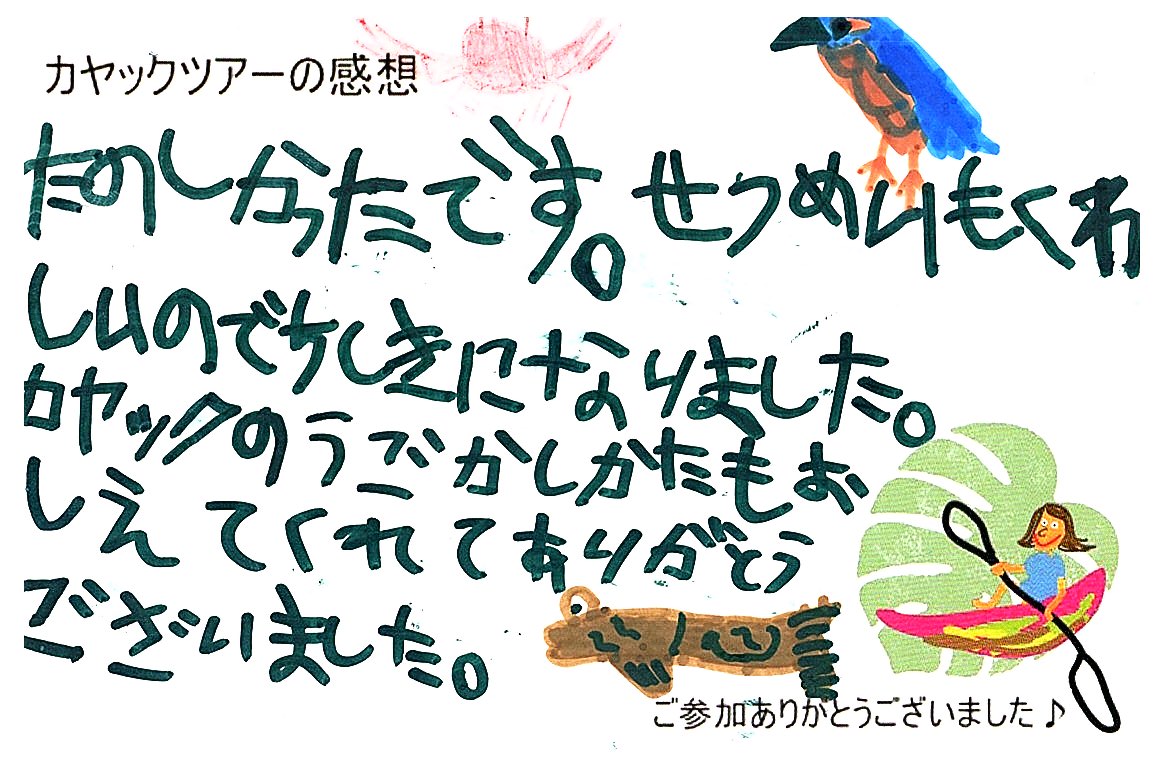 カヤックツアーの感想
たのしかったです。せつめいもくわ
しいのでちしきになりました。
カヤックのうごかしかたもお
しえてくれてありがとう
ございました。
ご参加ありがとうございました♪